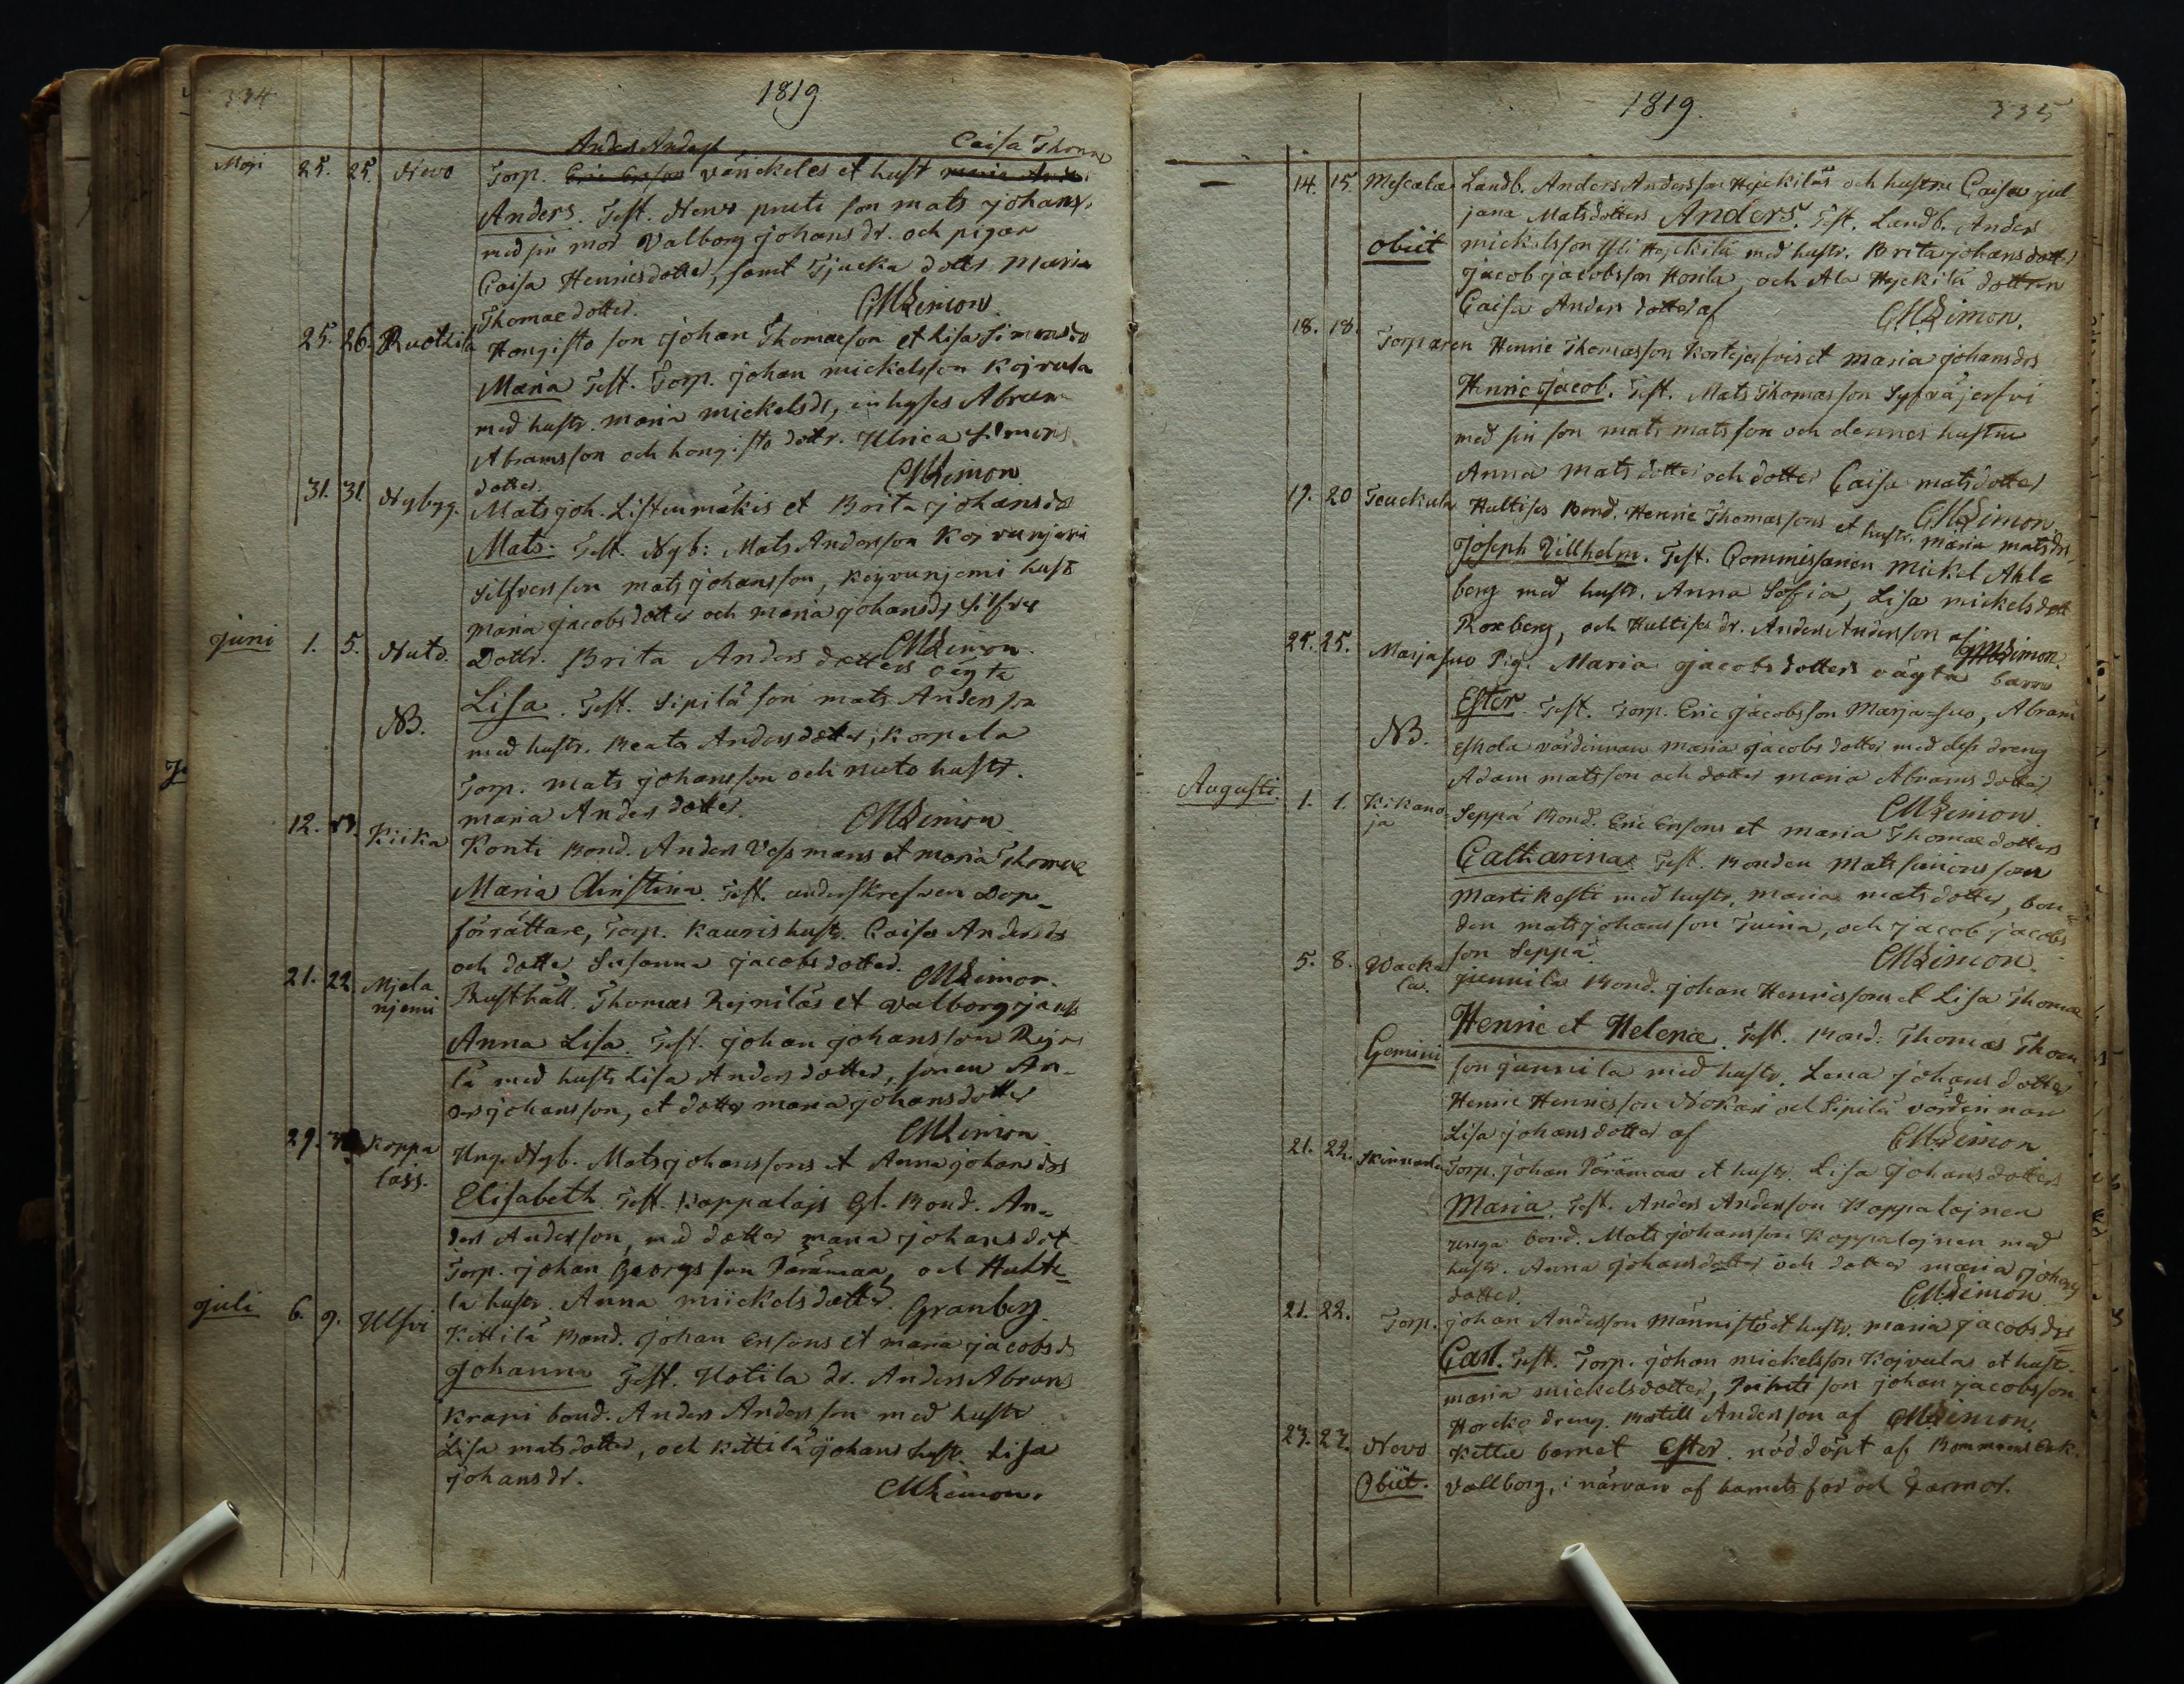 334
1819
Anders Anderss. Caisa Thomæ
Maji 25. 25. Nevo Torp. Eric Ersson Vänickeles et hust
Anders. Test. Nevo pruti son mats johanss.
med sin mor Valborg johans dr. och pigan
Caisa Henricsdotter, samt Tjucka dottr Maria
Thomædotter. CMLimon
25. 26. Ruotsila Hongisto son johan Thomæson et Lisa Simonsdr
Maria Test. Torp. johan mickelsson Kojvula
med hustr. maria mickelsdr, inhyses Abram
Abramsson och hongisto dottr. Ulrica Simons
dotter. CMLimon
31. 31. Nybyg. Mats joh. Listenmäkis et Brita johansdr
Mats. Test. Nyb: Mats Andersson Kojvunjemi
Silfvers son mats johansson, Kojvunjemi hustr
maria jacobsdotter och maria johansdr Silfver
juni 1. 5. Nuto. Dottr. Brita Andersdotters oägta CMLimon
Lisa. Test. Sipilä son mats Andersson
NB. med hustr. Beata Andersdotter, Korpela
Torp. mats johansson och nuto hustr.
maria Andersdotter. CMLimon
12. 13. Kiika Konti Bond. Anders Vessmans et maria Thomæ
Maria Christina. Test. underskrefven Dop-
förrättare, Torp. Kauris hustr. Caisa Andersdr
och dotter Susanna jacobsdotter. CMLimon.
21. 22 Mjela Rusthåll. Thomas Rejniläs et Valborg johs
njemi Anna Lisa. Test. johan johansson Rejni
lä med hustr Lisa Andersdotter, sonen An-
ders johansson, et dotter maria johansdotter
CMLimon.
29. Koppa Ung. Nyb. Mats johanssons et Anna johansdrs
lais. Elisabeth. Test. Koppalajs Gl. Bond. An-
ders Andersson, med dotter maria johansdot-
Torp. johan Georgsson Päramaa, och Huhti-
la hustr. Anna mickelsdotter. Granberg.
juli 6. 9. Ulsvi Kittilä Bond. johan Erssons et maria jacobsdr
Johanna Test. Uotila dr. Anders Abrams
Krapi bond. Anders Andersson med hustr
Lisa matsdotter, och Kittilä johans hustr. Lisa
johansdr. CMLimon.
1819. 335
– 14. 15. Mescala Landb. Anders Andersson Hyckiläs och hustru Caisa jul
jana Matsdotters Anders. Test. Landb. Anders
obiit mickelsson Yli Hyckilä med hustr. Brita johansdotter
jacob jacobsson Honla, och Ala Hyckilä dottren
Caisa Anders dotter af CMLimon.
18. 18. Torparen Henric Thomasson Kortejerfvis et Maria johansdrs
Henric Jacob. Test. Mats Thomasson Syfväjerfvi
med sin son mats matsson och dennes hustru
Anna matsdotter och dotter Caisa matsdotter
CMLimon.
19. 20 Teuckula Hultises Bond. Henric Thomassons et hustr. maria matsdrs
Joseph Villhelm. Test. Commissarien Mickel Ahl=
berg med hustr. Anna Sofia, Lisa mickelsdott
Roxberg, och Hultises dr. Anders Andersson af CMLimon.
24. 25. Marjasuo Pig. Maria jacobsdotters oägta barn
Ester. Test. Torp. Eric jacobsson Marja=suo, Abram
NB. Eskola värdinnan maria jacobsdotter med dess dreng
Adam matsson och dotter maria Abramsdotter
CMLimon
Augusti. 1. 1. Kikano= Seppä Bond. Eric Erssons et maria Thomædotters
ja Catharina. Test. Bonden Mats Simonsson
Martikesti med hustr. maria matsdotter, bon=
den mats johansson Tuina, och jacob jacobs
son Seppä. CMLimon.
5. 8. Wacka junnila Bond. johan Henricssons et Lisa Thomæ
la. Henric et Helena. Test. Bond: Thomas Thom
Gemini son junnila med hustr. Lena johansdotter
Henric Henricsson Nokari och Sipilä värdinnan
Lisa johansdotter af CMLimon
21. 22. Skinnarla Torp. johan Päramaas et hustr. Lisa johansdotters
Maria. Test. Anders Andersson Koppalojnen
unga bond. Mats johansson Koppalojnen med
hustr. Anna johansdotter och dotter maria johans
dotter. CMLimon
21. 22. Torp. johan Andersson Männistö et hustr. maria jacobsdrs
Carl. Test. Torp. johan mickelsson Kojvulas et hust-
maria mickelsdotter, son johan jacobsson
dreng. Bertill Andersson af CMLimon.
23. 23. Novo barnet Ester. nöddöpt af Bommans Enk.
Obiit. Vallborg, i närvaro af barnets far och farmor.